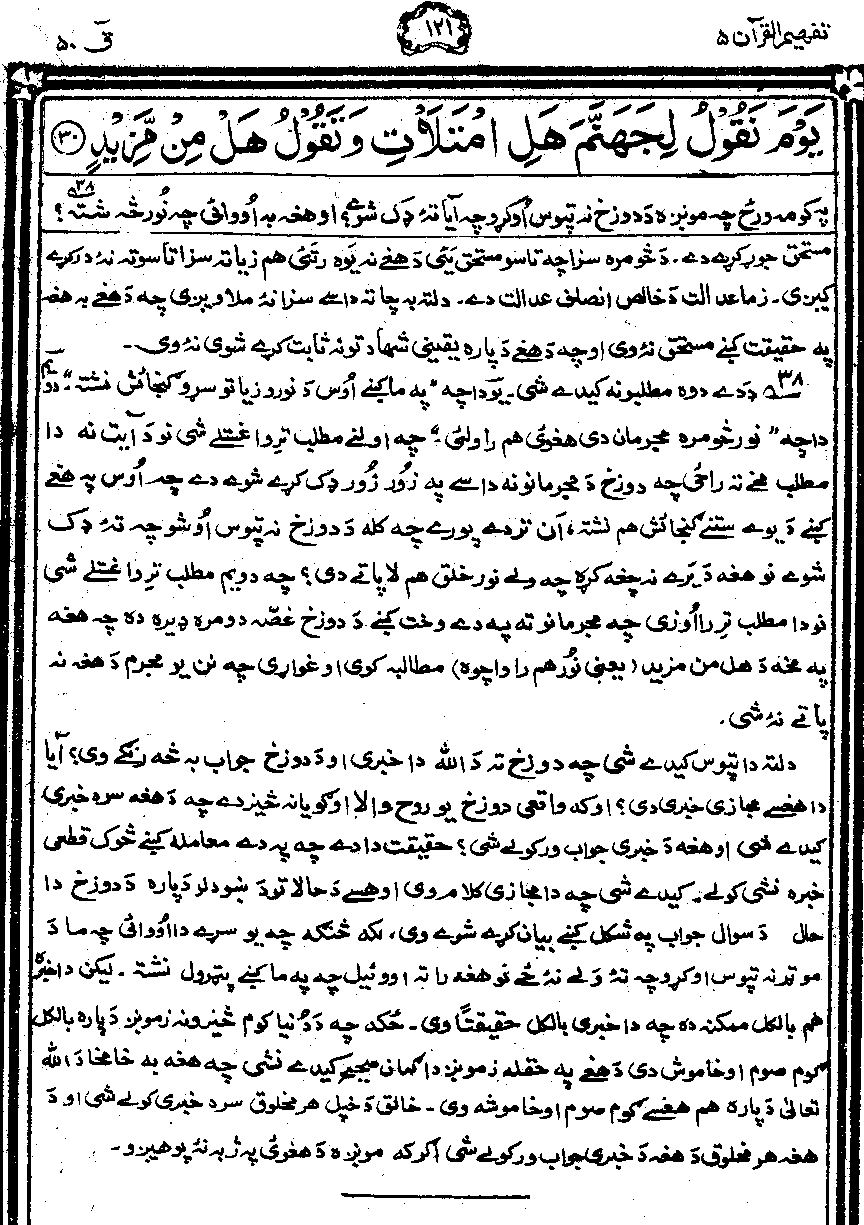 تفهیم القرآن ۵
۱۲۱
قٓ ۵۰
يَوْمَ نَقُوْلُ لِجَهَنَّمَ هَلِ امْتَلَاْتِ وَتَقُوْلُ هَلْ مِنْ مَّزِيْدٍ ۳۰
په کومه ورځ چه مونږه د دوزخ نه تپوس اوکړو چه آیا تهٔ ډک شوے؟ او هغه به اُووائی چه نُور څه شته؟ ۳۸
مستحق جوړ کړے دے۔ د څومره سزا چه تاسو مستحق یئی د هغے نه یَوه رتئی هم زیاته سزا تاسو ته نهٔ درکړے
کیږی۔ زما عدالت د خالص انصاف عدالت دے۔ دلته به چا ته داسے سزا نهٔ ملاویږی چه د هغے به هغه
په حقیقت کښے مستحق نهٔ وی او چه د هغے د پاره یقینی شهادتونه ثابت کړے شوی نهٔ وی۔
۳۸ ددے دوه مطلبونه کیدے شی۔ یَو دا چه "په ما کښے اُوس د نورو زیاتو سړو ګنجائش نشته" دوئم
دا چه "نور څومره مجرمان دی هغوئی هم راولئی۔" چه اولنے مطلب ترِ واغستلے شی نو د آیت نه دا
مطلب مخے ته راځی چه دوزخ د مجرمانو نه داسے په زُور زُور ډک کړے شوے دے چه اُوس په هغے
کښے د یوے ستنے ګنجائش هم نشته، آن تردے پورے چه کله د دوزخ نه تپوس اُوشو چه تهٔ ډک
شوے نو هغه د یَرے نه چغه کړه چه ولے نور خلق هم لا پاتے دی؟ چه دویم مطلب ترِ واغستلے شی
نو دا مطلب ترِ رااُوزی چه مجرمانو ته په دے وخت کښے د دوزخ غصّه دومره ډیره ده چه هغه
په مخه د هل من مزید (یعنی نُور هم را واچوه) مطالبه کوی او غواړی چه نن یو مجرم د هغه نه
پاتے نهٔ شی۔
دلته دا تپوس کیدے شی چه دوزخ ته د اللّٰه دا خبری او د دوزخ جواب به څه رنګے وی؟ آیا
دا هسے مجازی خبری دی؟ او که واقعی دوزخ یو روح والا او ګویا نه څیز دے چه د هغه سره خبری
کیدے شی او هغه د خبری جواب ورکولے شی؟ حقیقت دا دے چه په دے معامله کښے څوک قطعی
خبره نشی کولے۔ کیدے شی چه دا مجازی کلام وی او هسے د حالاتو د ښودلو د پاره د دوزخ دا
حال د سوال جواب په شکل کښے بیان کړے شوے وی، لکه څنګه چه یو سړے دا اُووائی چه ما د
موټر نه تپوس اوکړو چه تهٔ وَلے نهٔ ځے نو هغه را ته اووئیل چه په ما کښے پټرول نشته۔ لیکن دا خبره
هم بالکل ممکنه ده چه دا خبری بالکل حقیقتاً وی۔ ځکه چه د دُنیا کوم څیزونه زمونږ د پاره بالکل
ګوم صوم او خاموش دی د هغے په حقله زمونږ دا ګمان صحیح کیدے نشی چه هغه به خامخا د اللّٰه
تعالیٰ د پاره هم هغسے ګوم صوم او خاموشه وی۔ خالق د خپل هر مخلوق سره خبری کولے شی او د
هغه هر مخلوق د هغه د خبری جواب ورکولے شی اګر که مونږه د هغوئی په ژبه نهٔ پوهیږو۔